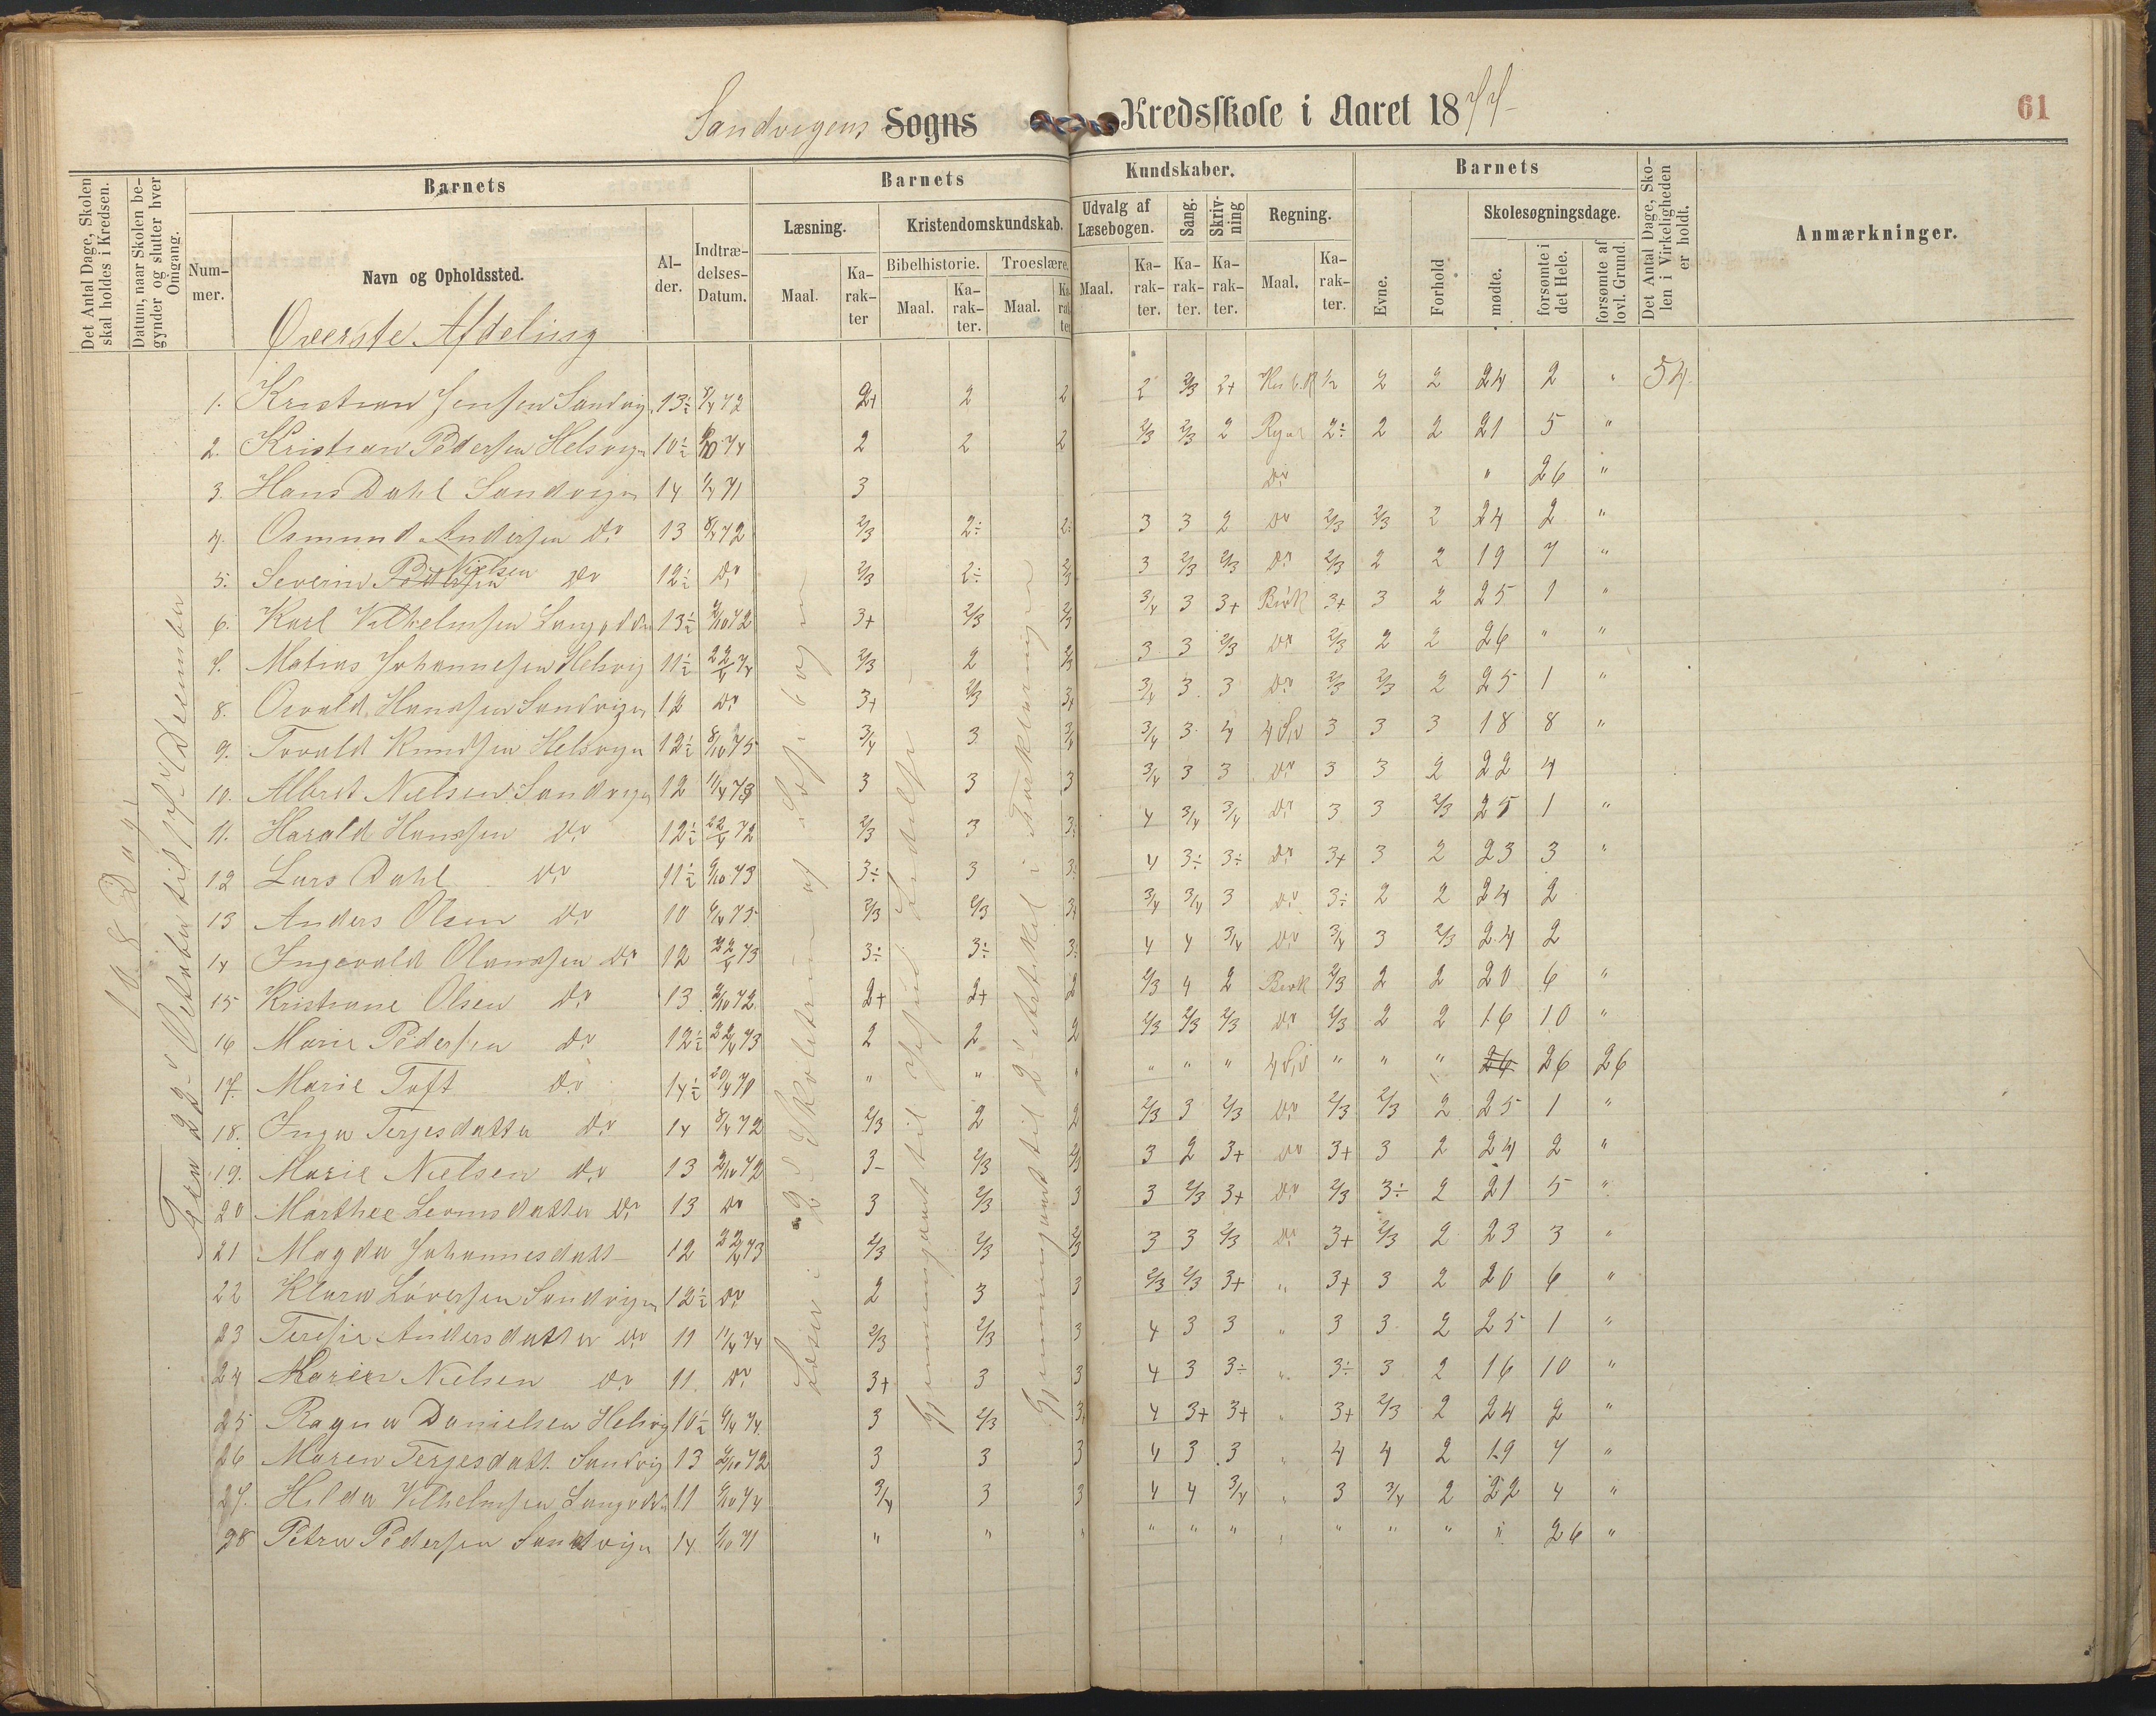 Sandvigens Sogns Kredsskole i Aaret 1877
61
Det Antal Dage, Skolen skal holdes i Kredsen.
Datum, naar Skolen begynder og slutter hver Omgang.
Barnets
Nummer.
Navn og Opholdssted.
Alder.
Indtrædelses-Datum.
Barnets
Læsning.
Maal.
Karakter
Kristendomskundskab.
Bibelhistorie.
Maal.
Karakter.
Troeslære.
Maal.
Karakter
Kundskaber.
Udvalg af Læsebogen.
Maal.
Karakter.
Sang.
Karakter.
Skrivning
Karakter.
Regning.
Maal.
Karakter.
Barnets
Evne.
Forhold
Skolesøgningsdage.
mødte.
forsømte i det Hele.
forsømte af lovl. Grund.
Det Antal Dage, Skolen i Virkeligheden er holdt.
Anmærkninger.
Øverste Afdeling
108 Dage
Fra 22 Oktober til December
1. Kristian Jensen Sandvig 13½ 8/4 72 2+ 2 2 2 2/3 2+ 1/2 2 2 24 2 " 54
2. Kristian Pedersen Helsvigen 10½ 74 2 2 2 2/3 2/3 2 2÷ 2 2 21 5 "
3. Hans Dahl Sandvigen 14 71 3 Do " 26 "
4. Osmund Andersen Do 13 8/4 72 2/3 2÷ 2÷ 3 3 2 Do 2/3 2/3 2 24 2 "
5. Severin Pedersen Nielsen Do 12½ Do 2/3 2÷ 2/3 3 2/3 2/3 Do 2/3 2 2 19 7 "
6. Karl Vilhelmsen 13½ 2/10 72 3+ 2/3 2/3 3/4 3 3+ Brøk 3+ 3 2 25 1 "
7. Matias Johannesen Helsvig 11½ 22/4 74 2/3 2 2/3 3 3 2/3 Do 2/3 2 2 26 " "
8. Osvald Hansen Sandvigen 12 Do 3+ 2/3 3+ 3/4 3 3 Do 2/3 2/3 2 25 1 "
9. Torvald Knudsen Helsvigen 12½ 8/10 75 3/4 3 3/4 3/4 3 4 3 3 3 18 8 "
10. Albret Nielsen Sandvigen 12 11/4 73 3 3 3 3/4 3 3 Do 3 3 2 22 4
11. Harald Hansen Do 12½ 22/4 72 2/3 3 3÷ 4 3/4 3/4 Do 3 3 2/3 25 1 "
12 Lars Dahl Do 11½ 73 3÷ 3 3÷ 4 3÷ 3÷ Do 3+ 3 2 23 3 "
13 Anders Olsen Do 10 75 2/3 2/3 3+ 3/4 3/4 3 Do 3÷ 2 2 24 2
14 Ingevald Olausen Do 12 22/4 73 3÷ 3÷ 3÷ 4 4 3/4 Do 3/4 3 2/3 24 2
15 Kristiane Olsen Do 13 2/10 72 2+ 2+ 2 2/3 4 2 Brøk 2/3 2 2 20 6 "
16 Marie Pedersen Do 12½ 22/4 73 2 2 2 2/3 2/3 2/3 Do 2/3 2 2 16 10 "
17. Marie Toft Do 14½ 20/4 70 " " " " " " " " " 26 26 26
18. Inga Terjesdatter Do 14 8/4 72 2/3 2 2 2/3 3 2/3 Do 2/3 2/3 2 25 1 "
19. Marie Nielsen Do 13 2/10 72 3- 2/3 2/3 3 2 3+ Do 3+ 3 2 24 2 "
20 Marthee Do 13 Do 3 2/3 3 3 2/3 3+ Do 2/3 3÷ 2 21 5 "
21 Magda Johannesdatt 12 22/4 73 2/3 2/3 2/3 3 3 2/3 Do 3+ 2/3 2 23 3 "
22 Klara Sandvigen 12½ Do 2 3 3 2/3 2/3 3+ " 3+ 3 2 20 6 "
23 Teresie Andersdatter Do 11 11/4 74 2/3 2/3 3 4 3 3 " 3 3 2 25 1 "
24 Karen Nielsen Do 11 Do 3+ 3 3 4 3 3÷ " 3÷ 3 2 16 10 "
25 Ragna Danielsen Helsvig 10½ 74 3 2/3 3+ 4 3+ 3+ " 3+ 2/3 2 24 2 "
26 Maren Terjesdatt. Sandvig 13 2/10 72 3 3 3 4 3 3 " 4 4 2 19 7 "
27. Hilda Vilhelmsen 11 74 3/4 3 3 4 4 3/4 " 3 3/4 2 22 4 "
28 Petra Pedersen Sandvigen 14 71 " " " " " " " " " " " 26 "
Læser i 2 af Læsebogen
Gjennemgaaet til
Gjennemgaaet til 2 Artikel i Forklaringen